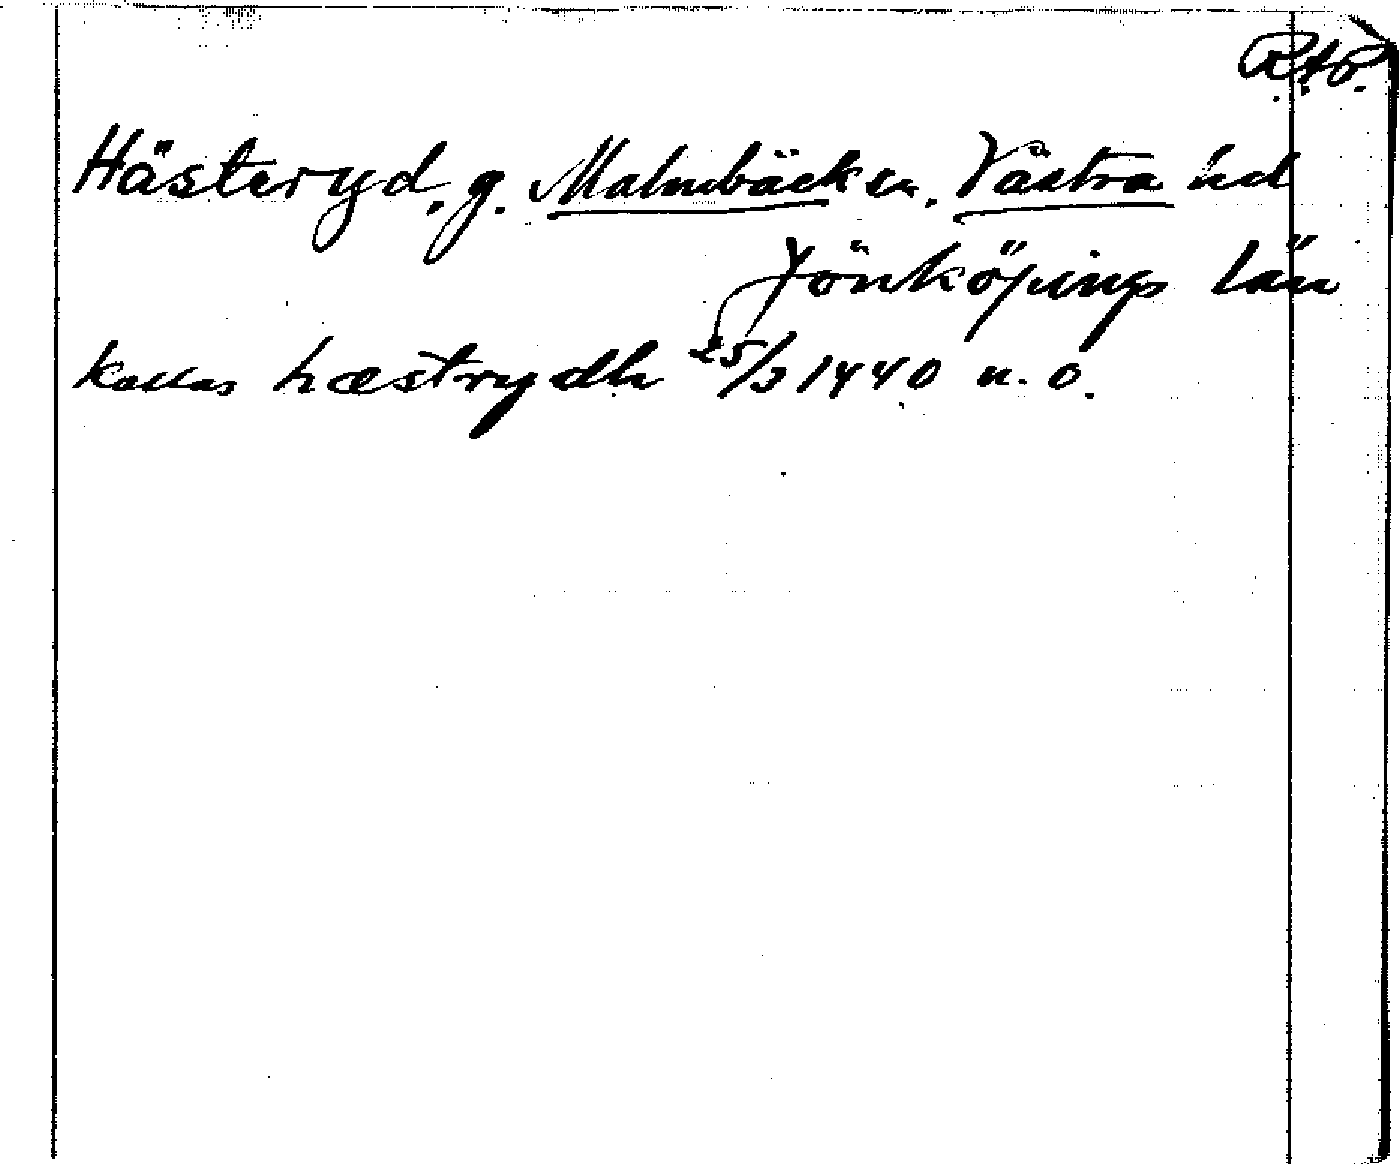 R.A.P.
Hästeryd, g. Malmbäck sn, Västra hd
Jönköpings län
kallas hæstrydh 25/3 1440 n. o.